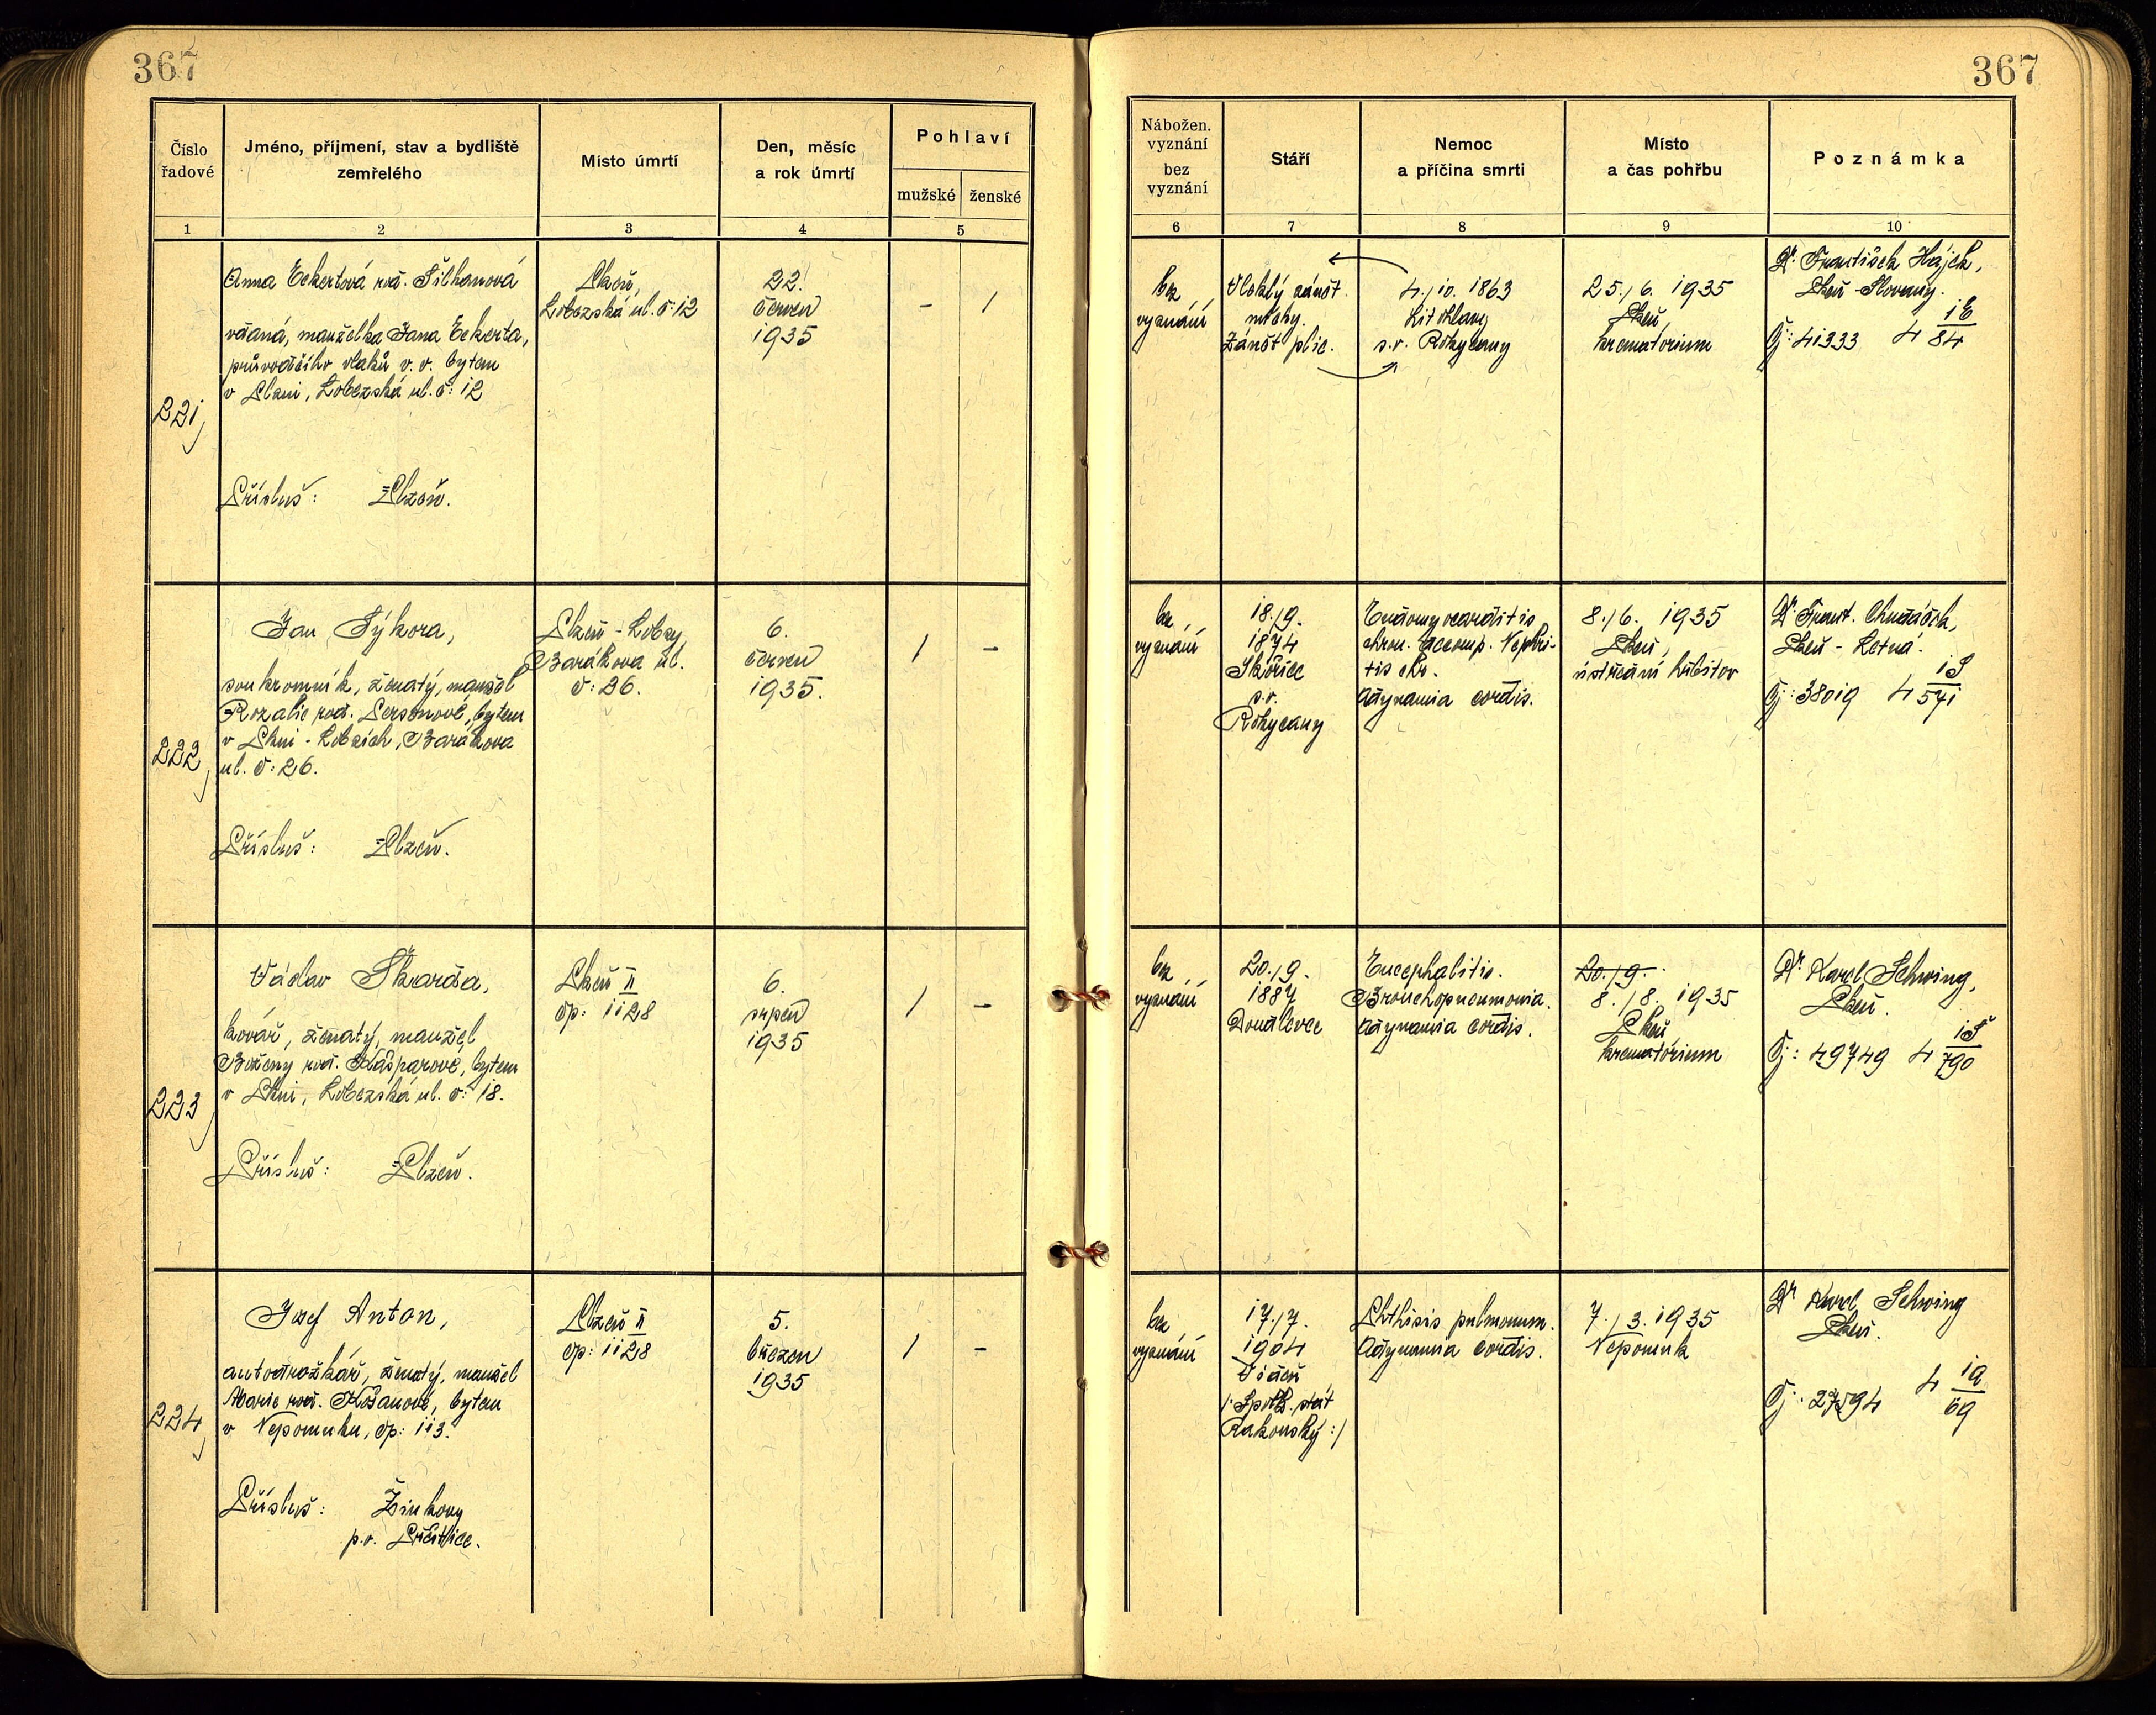 367
367
Číslo
řadové
Jméno, příjmení, stav a bydliště
zemřelého
Místo úmrtí
Den, měsíc
a rok úmrtí
Pohlaví
mužské
ženské
Nábožen.
vyznání
bez
vyznání
Stáří
Nemoc
a příčina smrti
Místo
a čas pohřbu
Poznámka
1
2
3
4
5
6
7
8
9
10
221
Anna Eckertová roz. Šilhanová
vdaná, manželka Jana Eckerta,
průvodčího vlaků v. v. bytem
v Plzni, Lobezská ul. č: 12
Přísluš: Plzeň.
Plzeň,
Lobezská ul. č: 12
22.
červen
1935
- 1
bez
vyznání
Vleklý zánět
Zánět plic.
4./10. 1863
Litohlavy
s.v. Rokycany
25./6. 1935
Plzeň,
krematorium
Dr. František Hájek,
Plzeň - Slovany.
Čj: 41333 4 1E/84
222
Jan Sýkora,
soukromník, ženatý, manžel
Rozalie roz. bytem
v Plzni - Lobzích, Barákova
ul. č: 26.
Přísluš: Plzeň.
Plzeň - Lobzy
Barákova ul.
č: 26.
6.
červen
1935.
1 -
bez
vyznání
18./9.
1874
Skořice
s.v.
Rokycany
Endomyocarditis
chron. accomp. Nephri-
tis chr.
Adynamia cordis.
8./6. 1935
Plzeň,
ústřední hřbitov
Dr. Frant. Chudáček,
Plzeň - Letná.
Čj: 38019 4 1S/571
223
Václav Škarda,
kovář, ženatý, manžel
Boženy roz. Kašparové, bytem
v Plzni, Lobezská ul. č: 18.
Přísluš: Plzeň.
Plzeň II
čp: 1128
6.
srpen
1935
1 -
bez
vyznání
20./9.
1887
Doudlevce
Encephalitis.
Bronchopneumonia.
Adynamia cordis.
20./9.
8./8. 1935
Plzeň
krematórium
Dr. Karel Schwing,
Plzeň.
Čj: 49749 4 1Š/790
224
Josef Anton,
autodrožkář, ženatý, manžel
Marie roz. bytem
v Nepomuku, čp: 113.
Přísluš: Žinkovy
p.o. Přeštice.
Plzeň II
čp: 1128
5.
březen
1935
1 -
bez
vyznání
17./7.
1904
Vídeň
/: Spolk. stát
Rakouský :/
Phthisis pulmonum.
Adynamia cordis.
7./3. 1935
Nepomuk
Dr. Karel Schwing
Plzeň.
Čj: 27594 4 1A/69